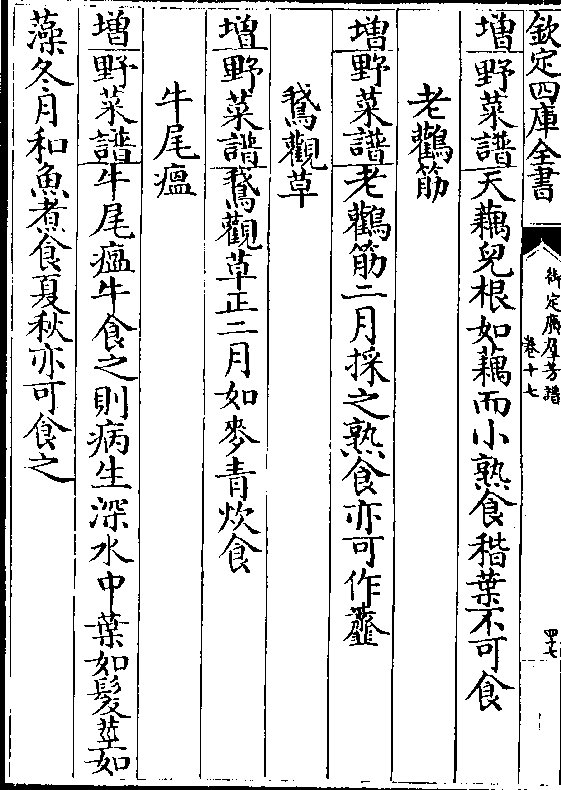 欽定四庫全書
御定廣羣芳譜
卷十七
四十七
增野菜譜天藕兒根如藕而小熟食稭葉不可食
老鸛筋
增野菜譜老鸛筋二月採之熟食亦可作虀
鵞觀草
增野菜譜鵞觀草正二月如麥青炊食
牛尾瘟
增野菜譜牛尾瘟牛食之則病生深水中葉如髪莖如
藻冬月和魚煮食夏秋亦可食之